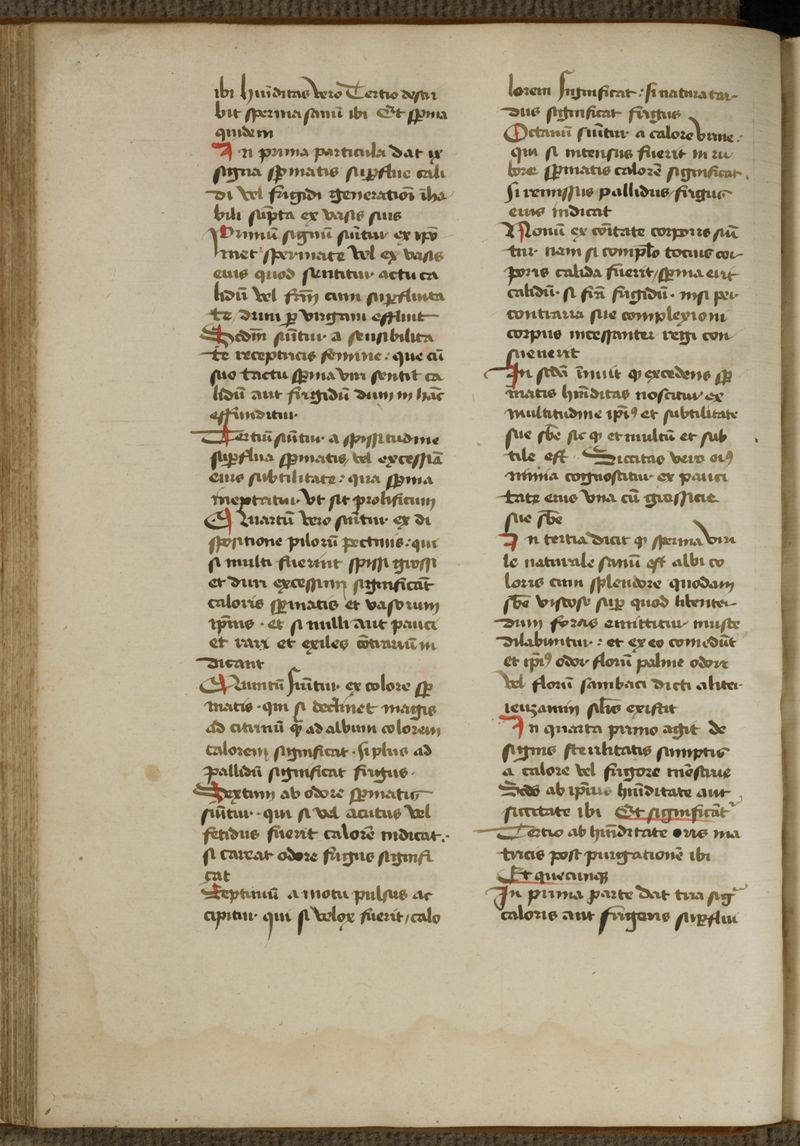 ibi hūiditas vero Tertio descri
bit sperma sanū ibi Et sp̄ma
quidem
In prima particula dat ix
signa sp̄matis sup̄flue cali
di vel frigidi generatiōi īha
bili sūpta ex vasis suis
Primū signū sūitur ex ip̄o
met spermate vel ex vasis
eius quod sentitur actu ca
lidū vel frīm cum sup̄fluita
te dum p̄ virgam effluit
Secdm̄ sūitur a sensibilita
te receptricis femine: que cū
suo tactu sp̄ma viri sentit ca
lidū aut frigidū dum in hāc
effunditur.
Tertiū sūitur a spissitudine
sup̄flua sp̄matis vel excessiua
eius subtilitate: qua sp̄ma
ineptatur vt sit prolificum
Quartū vero sūitur ex di
spositione pilorū pectinis: qui
si multi fuerint spissi grossi
et duri excessum significāt
caloris sp̄matis et vasorum
ip̄ius . et si nulli aut pauci
et rari et exiles cōtrariū in
dicant
Quintū sūitur ex colore sp̄
matis . qui si declinet magis
ad citrinū q̄ ad album colorem
calorem significat . si plus ad
pallidū significat frigus .
Sextum ab odore sp̄matis
sūitur . qui si vel acutus vel
fetidus fuerit calorē indicat .
si careat odore frigus signifi
cat
Septimū a motu pulsus ac
cipitur qui si velox fuerit / calo
lorem significat: si natura tar-
dus significat frigus
Octauū sūitur a calore vrine:
qui si intensus fuerit in ru
bore sp̄matis calorē significat .
si remissus pallidus frigus
eius indicat
Nonū ex cōitate corporis sūi
tur nam si comp̄lo tocius cor
poris calida fuerit / sp̄ma erit
calidū . si frīa frigidū . nisi per
contraria sue complexioni
corpus incessanter regi con
sueuerit
In secda īnuit q̄ excedens sp̄
matis hūiditas noscitur ex
multitudine ip̄i⁹ et subtilitate
sue sb̄e sic q̄ et multū et sub
tile est Siccitas vero ei⁹
nimia cognoscitur ex pauci
tate eius vna cū grossicie
sue sb̄e
In tertia dicit q̄ sperma viri
le naturale sanū est albi co
loris cum splendore quodam
sb̄e viscose sup̄ quod libenter
dum foras emittitur musce
dilabuntur: et ex eo comedūt
et ip̄i⁹ odor florū palme odori
vel florū sambaci dicti aliter
ieuzamin sīlis existit
In quarta primo agit de
signis sterilitatis sumptis
a calore vel frigore mēstrue
Secdo ab ip̄ius hūiditate aut
siccitate ibi Et significāt
Tertio ab hūiditate oris ma
tricis post purgationē ibi
Et quecunq̄
In prima parte dat tria sig
caloris aut frigoris sup̄flui